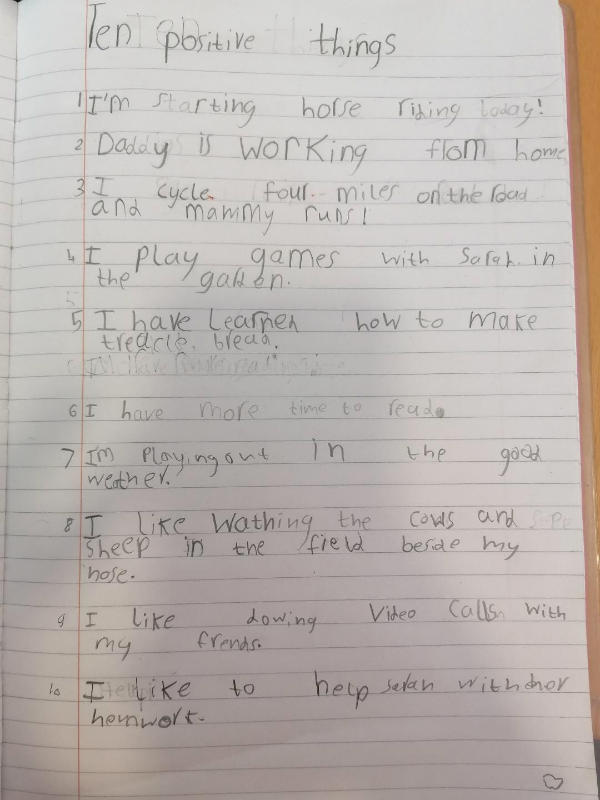 Ten positive things
1 I'm starting horse riding today!
2 Daddy is working from home
3 I cycle four miles on the road
and mammy runs!
4 I play games with Sarah in
the garden.
5 I have learned how to make
treacle bread.
6 I have more time to read.
7 I'm playing out in the good
weather.
8 I like wathing the cows and
sheep in the field beside my
hose.
9 I like dowing Video Calls with
my frends.
10 I like to help sarah with her
homwork.